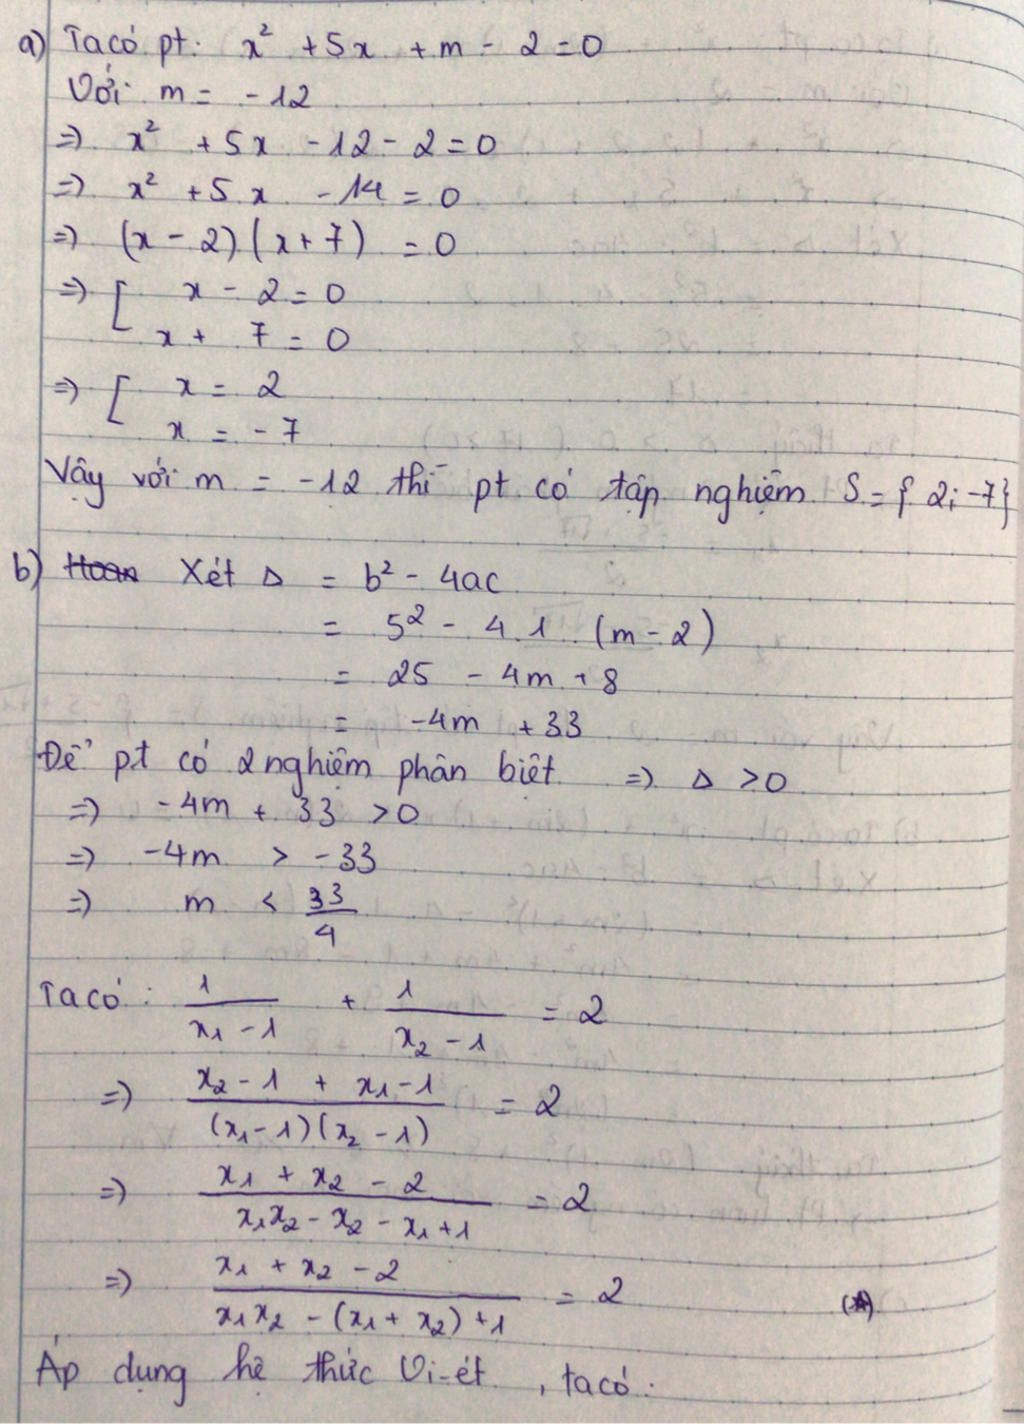 a) Ta có pt: x² + 5x + m - 2 = 0
Với m = -12
=> x² + 5x - 12 - 2 = 0
=> x² + 5x - 14 = 0
=> (x - 2)(x + 7) = 0
=> [ x - 2 = 0
x + 7 = 0
=> [ x = 2
x = -7
Vậy với m = -12 thì pt có tập nghiệm S = { 2; -7}
b) Xét Δ = b² - 4ac
= 5² - 4.1.(m - 2)
= 25 - 4m + 8
= -4m + 33
Để pt có 2 nghiệm phân biệt => Δ > 0
=> -4m + 33 > 0
=> -4m > -33
=> m < 33/4
Ta có: 1/(x₁ - 1) + 1/(x₂ - 1) = 2
=> (x₂ - 1 + x₁ - 1)/((x₁ - 1)(x₂ - 1)) = 2
=> (x₁ + x₂ - 2)/(x₁x₂ - x₂ - x₁ + 1) = 2
=> (x₁ + x₂ - 2)/(x₁x₂ - (x₁ + x₂) + 1) = 2 (*)
Áp dụng hệ thức Vi-ét, ta có: